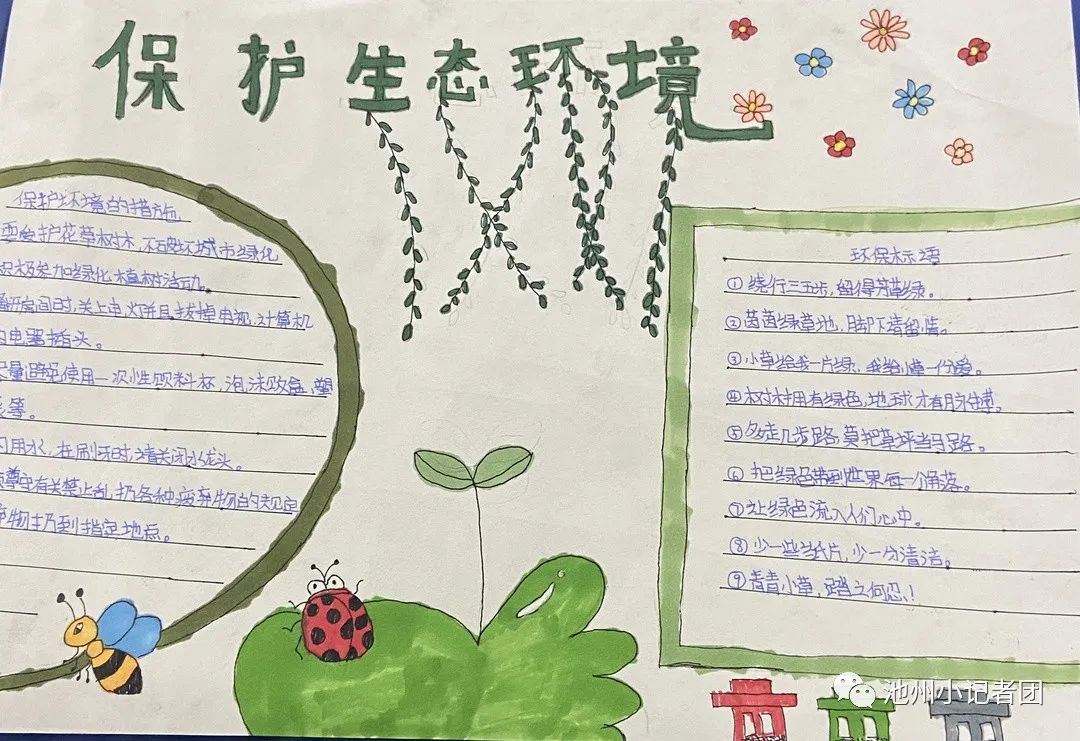 保护生态环境
保护环境的措施
要爱护花草树木,不破坏城市绿化
积极参加绿化植树活动。
离开房间时,关上电灯并且拔掉电视、计算机
电器插头。
尽量避免使用一次性饮料杯,泡沫饭盒,塑
等。
用水,在刷牙时请关闭水龙头。
遵守有关禁止乱扔各种废弃物的规定
弃物扔到指定地点。
环保标语
①绕行三五步,留得芳草绿。
②茵茵绿草地,脚下请留情。
③小草给我一片绿,我给小草一份爱。
④树木拥有绿色,地球才有脉搏。
⑤多走几步路,莫把草坪当马路。
⑥把绿色带到世界每一个角落。
⑦让绿色流入人们心中。
⑧少一些纸片,少一分清洁。
⑨青青小草,踏之何忍!
池州小记者团